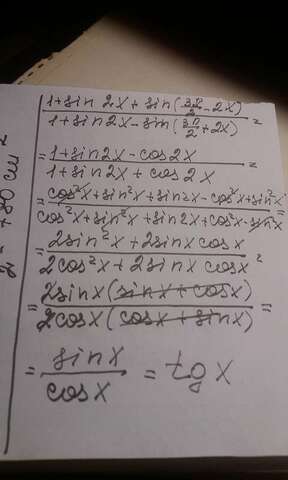 (1+sin 2x + sin(3π/2 - 2x)) / (1+sin2x - sin(3π/2 + 2x)) =
= (1+sin2x - cos2x) / (1+sin2x + cos2x) =
= (cos²x + sin²x + sin2x - cos²x + sin²x) / (cos²x + sin²x + sin2x + cos²x - sin²x) =
= (2sin²x + 2sinx cosx) / (2cos²x + 2sinx cosx) =
= (2sinx (sinx + cosx)) / (2cosx (cosx + sinx)) =
= sinx / cosx = tg x